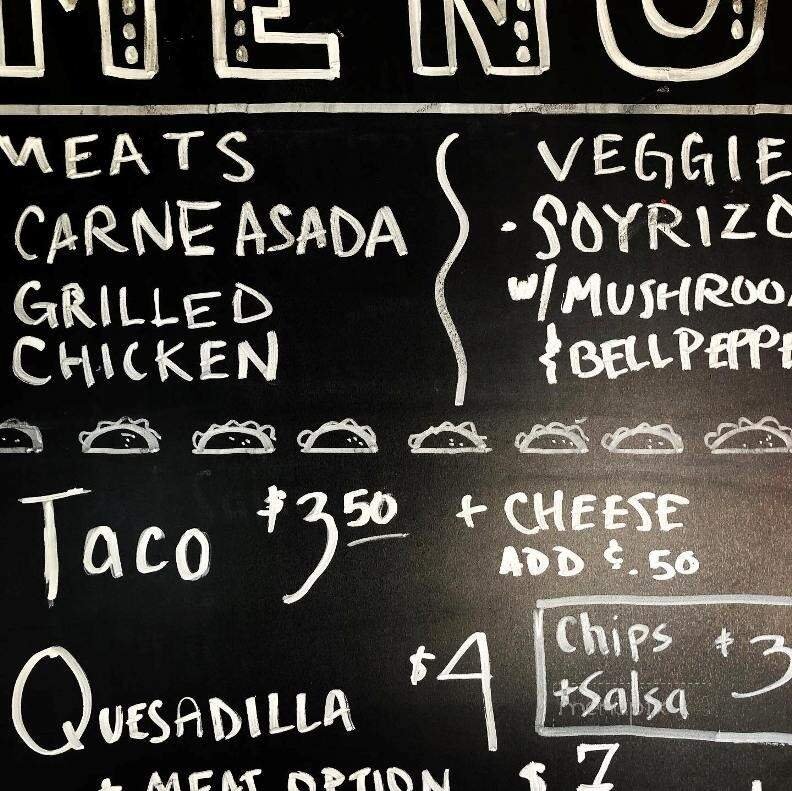 MENU
MEATS
CARNE ASADA
GRILLED
CHICKEN
VEGGIE
· SOYRIZO
w/ MUSHROO
& BELL PEPPE
Taco $3 50 + CHEESE
ADD ¢.50
QUESADILLA $4
Chips $3
+ Salsa
+ MEAT OPTION $7